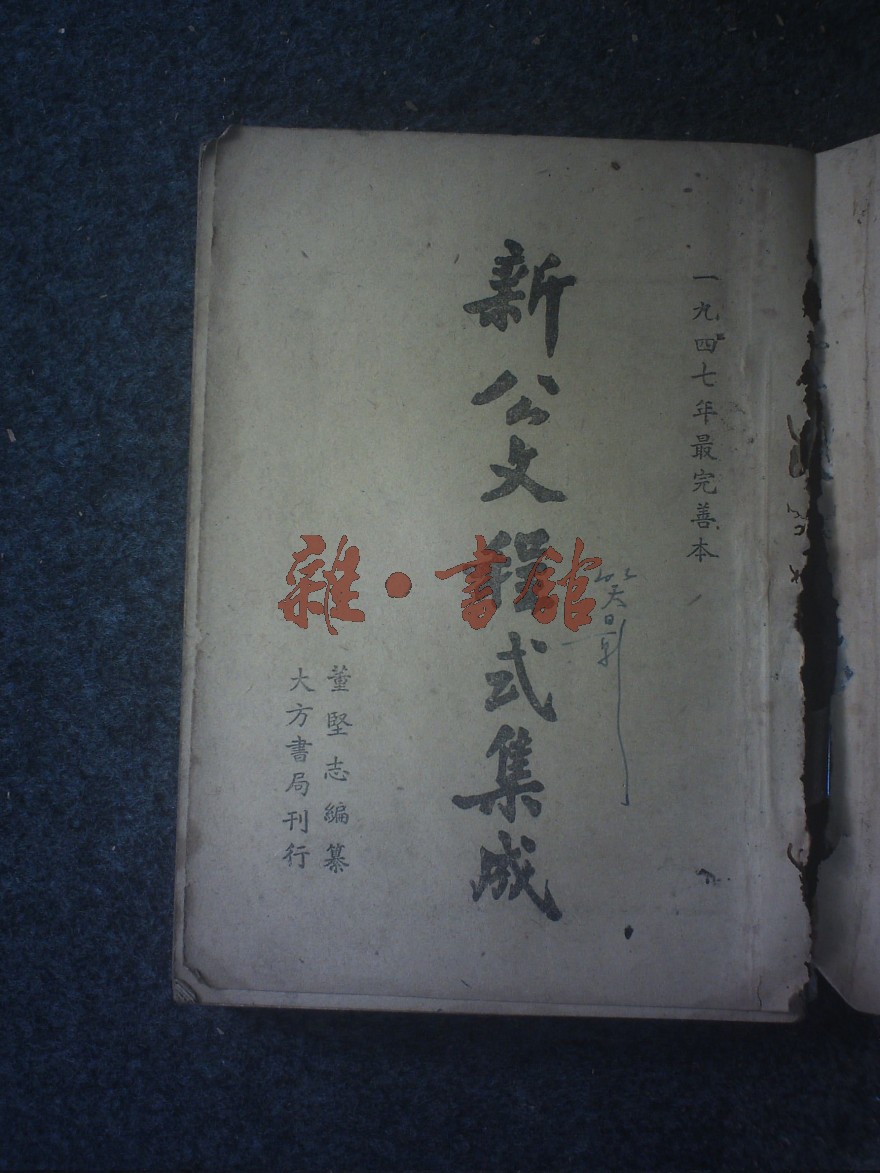 一九四七年最完善本
新公文程式集成
董堅志編纂
大方書局刊行
雜·書館